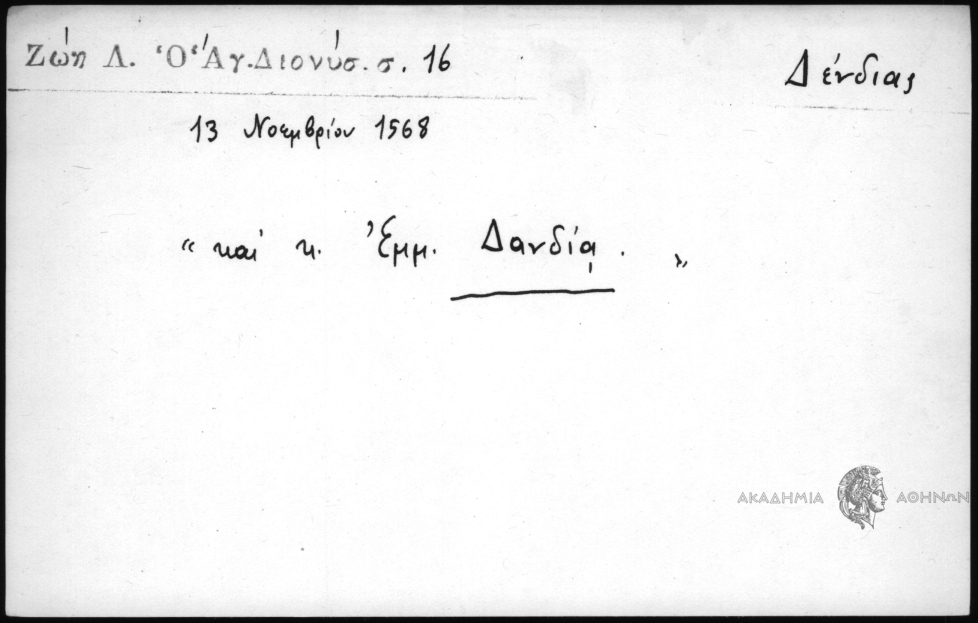 Ζώη Λ. Ὁ Ἅγ. Διονύσ. σ. 16
Δένδιας
13 Νοεμβρίου 1568
“ καί κ. Ἐμμ. Δανδίᾳ . „
ΑΚΑΔΗΜΙΑ ΑΘΗΝΩΝ